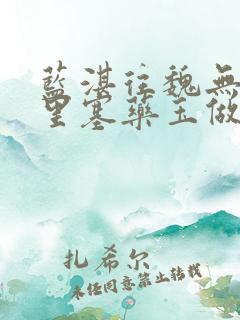 藍湛往魏無
里塞藥玉做
扎希尔
未经同意禁止转载